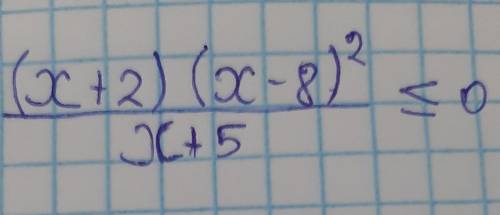 (x+2)(x-8)²
x+5 ≤ 0